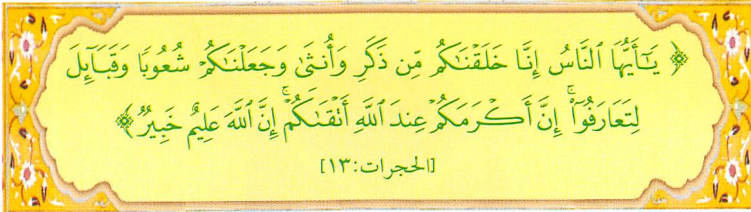 ﴿ يَـٰٓأَيُّهَا ٱلنَّاسُ إِنَّا خَلَقۡنَـٰكُم مِّن ذَكَرٖ وَأُنثَىٰ وَجَعَلۡنَـٰكُمۡ شُعُوبٗا وَقَبَآئِلَ
لِتَعَارَفُوٓاْۚ إِنَّ أَكۡرَمَكُمۡ عِندَ ٱللَّهِ أَتۡقَىٰكُمۡۚ إِنَّ ٱللَّهَ عَلِيمٌ خَبِيرٞ ﴾
[الحجرات: ١٣]